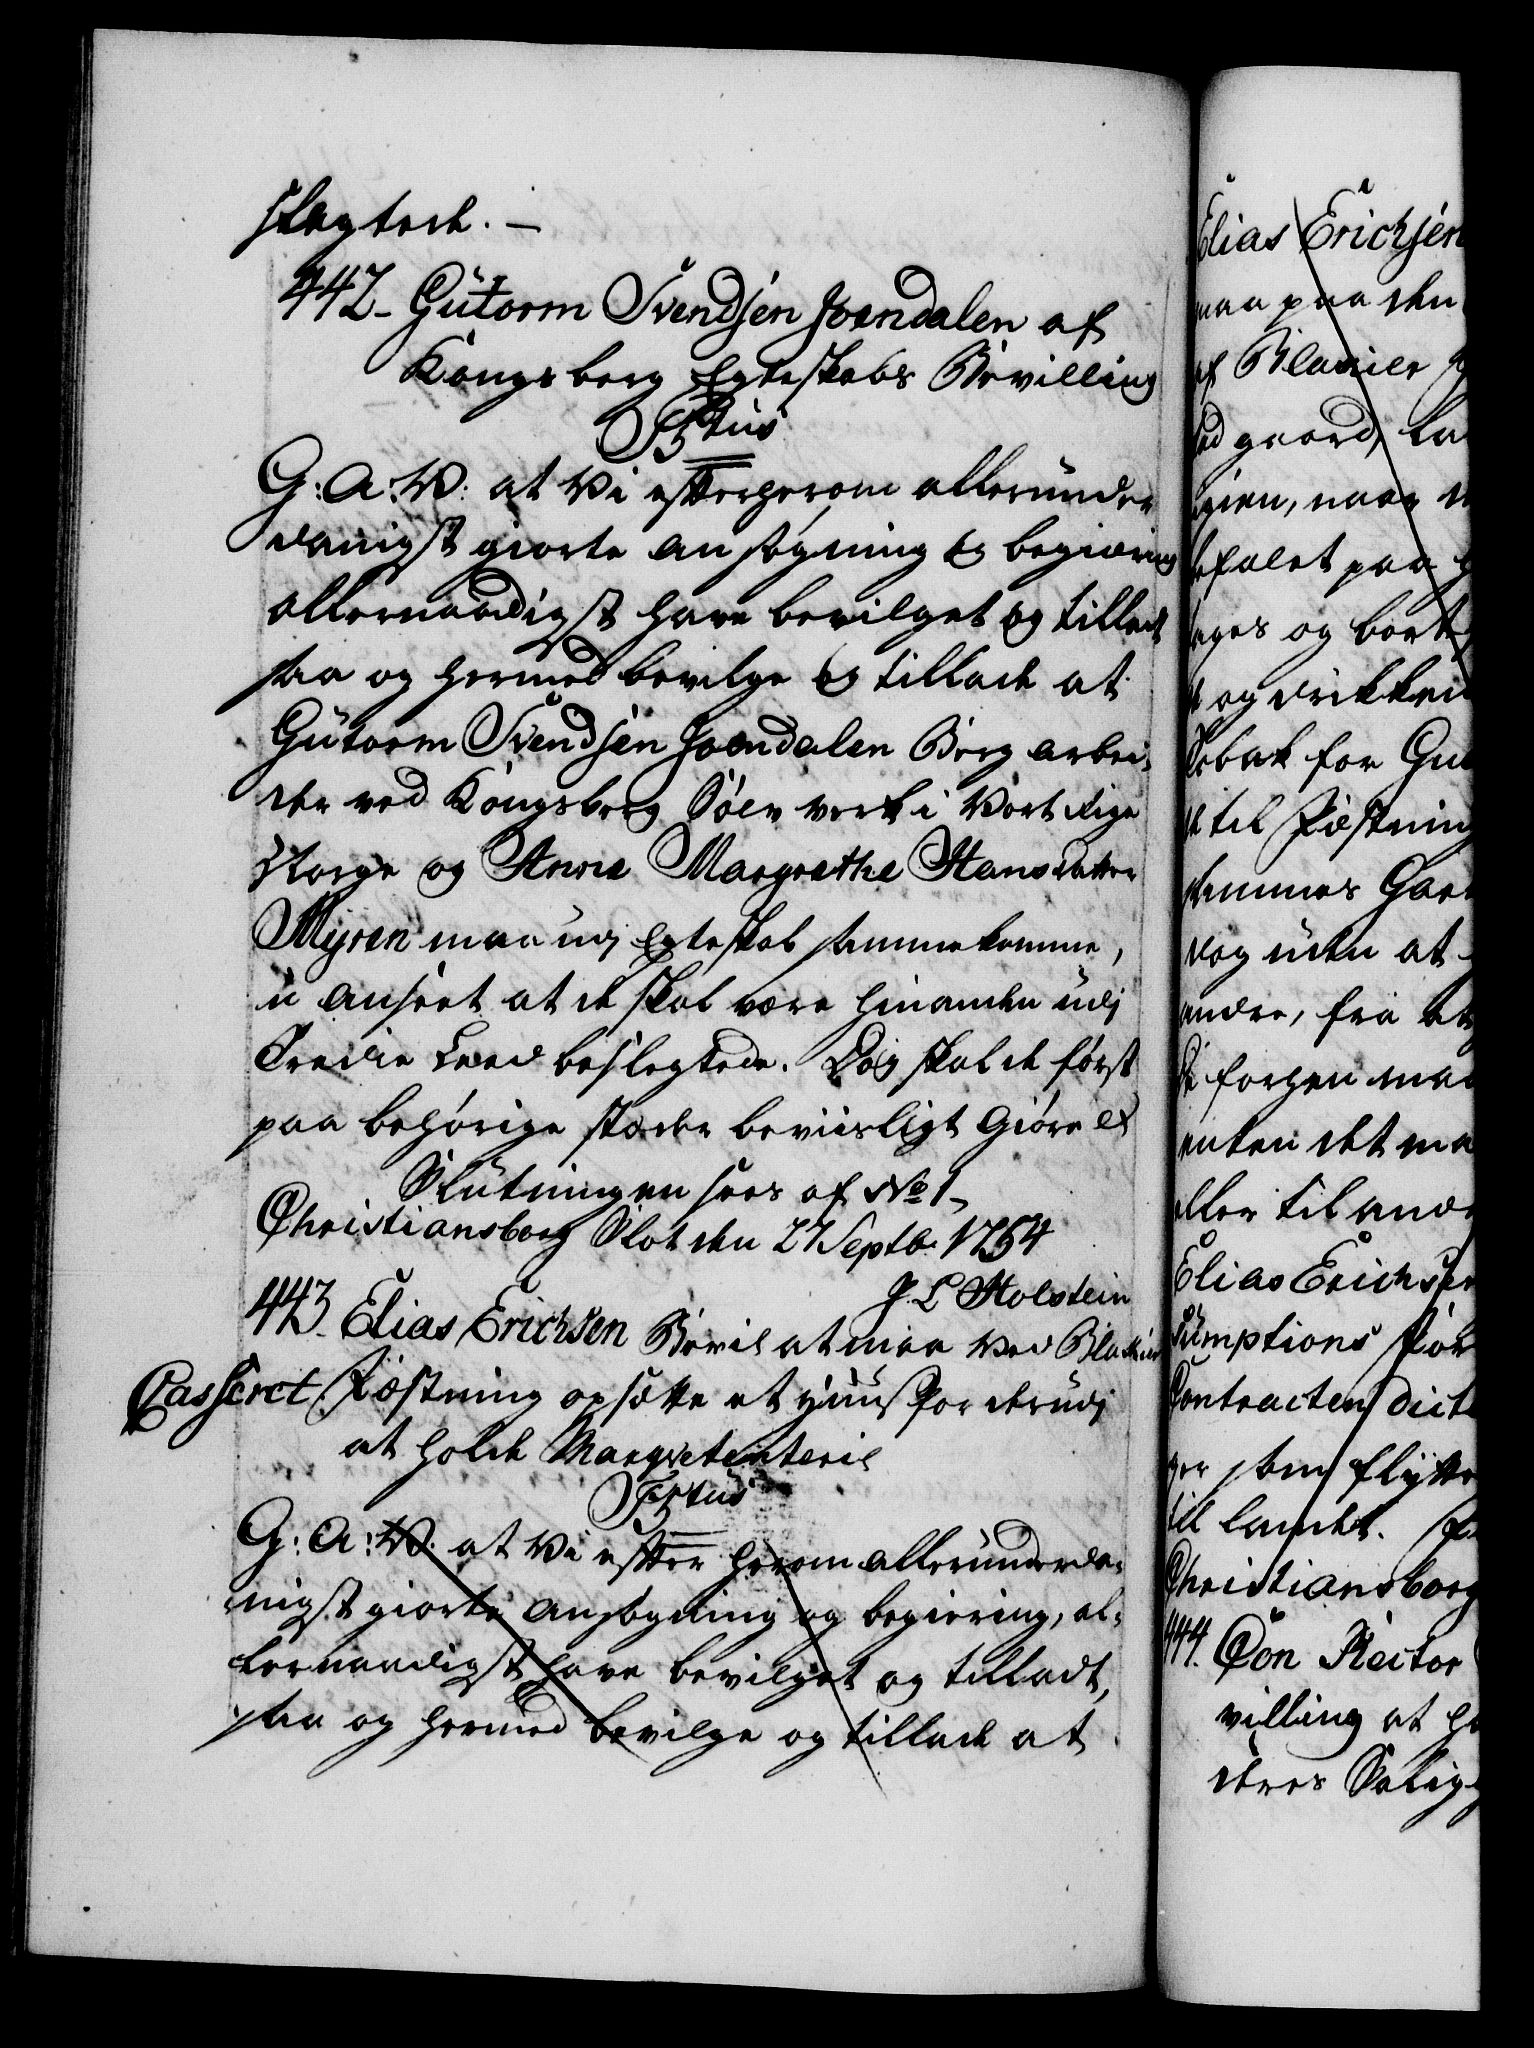 slegtede. —
442_ Gutorm Svendsen Joendalen af
Kongsberg Egteskabs Bevilling
F5tus
G: A: V: at Vi efter herom allerunder
danigst giorte ansøgning og begiering
allernaadigst have bevilget og tilladt
saa og hermed bevilge og tillade at
Gutorm Svendsen Joendalen Berg arbei-
der ved Kongsberg Sølv verk i Vort Rige
Norge og Anne Margrethe Hansdatter
Myren maa udj Egteskab sammenkomme,
u anseet at de skal være hinanden udj
Tredie Leed beslegtede. Dog skal de først
paa behørige stæder beviisligt Giøre et
Slutningen sees af No 1_
Christiansborg Slot den 27 Septb. 1754
J. L Holstein
443_ Elias Erichsen Bevil at maa Ved Blakier
Casseret Fæstning opsætte et huus for derudj
at holde Marqvetenterie
F5tus
G: A: V. at Vi efter herom allerunderda-
nigst giorte ansøgning og begiering, al-
lernaadigst have bevilget og tilladt,
saa og hermed bevilge og tillade at
Elias Erichsen
maa paa den
af Blakier
gaard, la
naar
befalet paa
tages og bort
og drikken
Tobak for
til Fæstning
sammes
dog uden at
andre, fra
forhen maa
enten det ma
eller til andr
Elias Erichsen
Sumptions
Contracten
som flytte
til landet.
Christiansborg
444. Con Rector
villing at
deres Salig